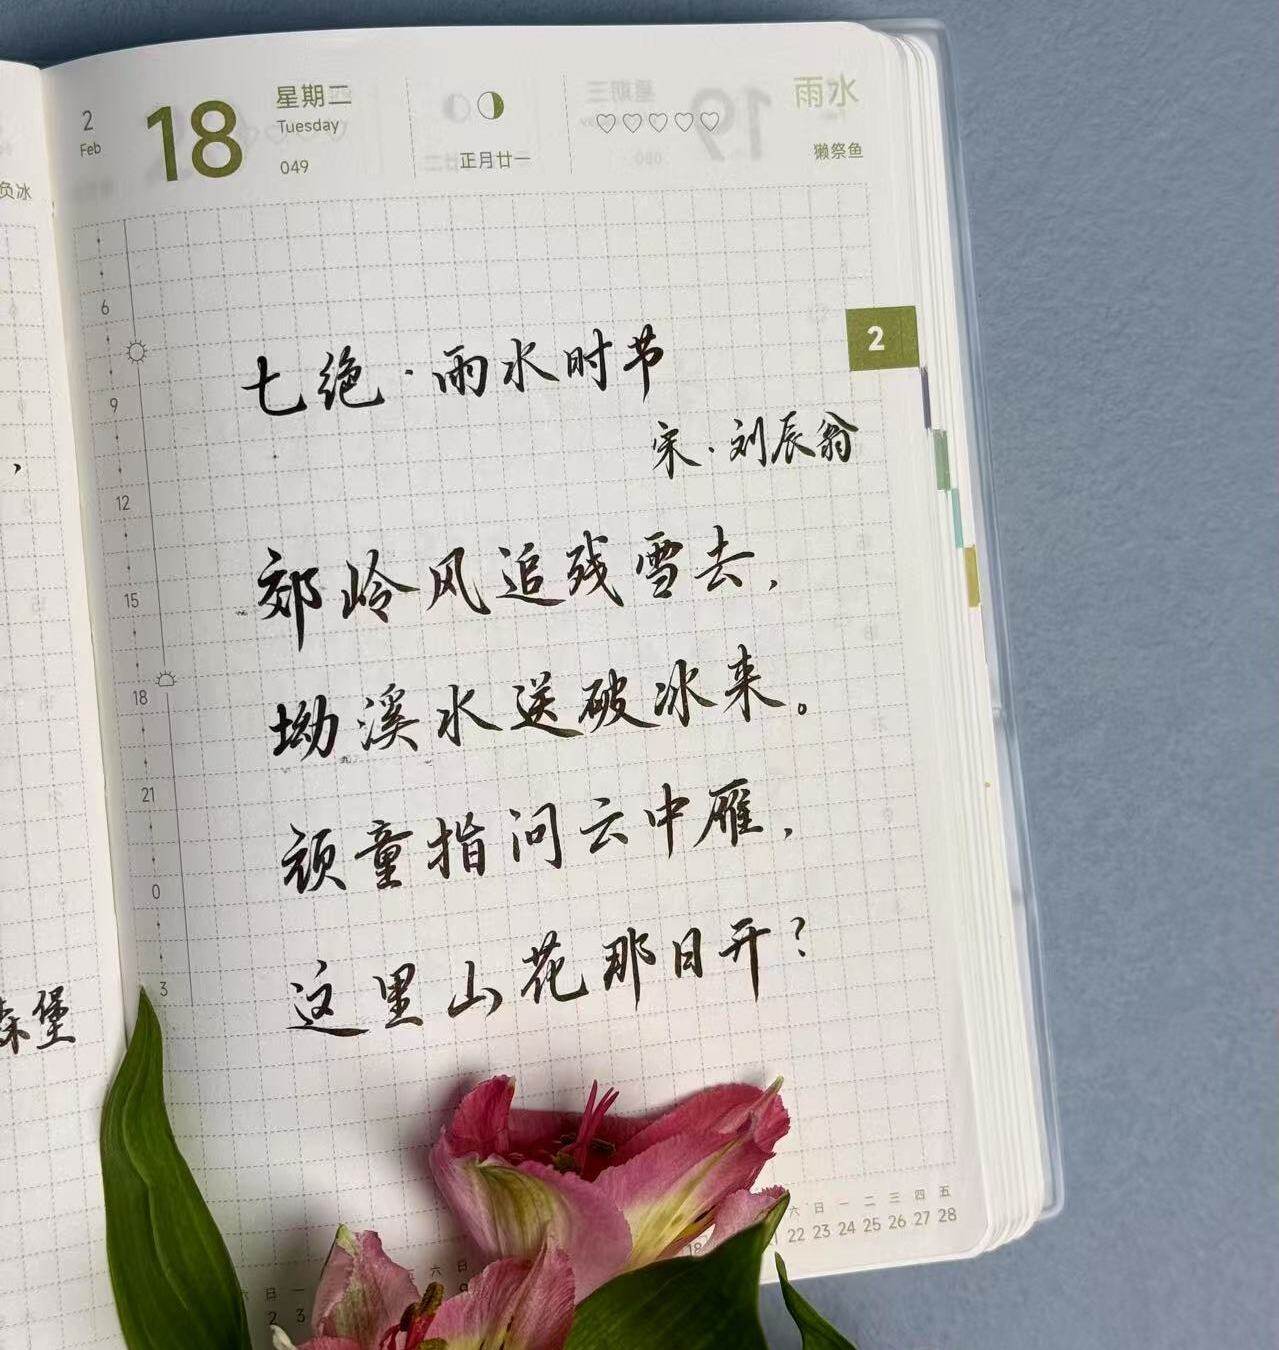 2
Feb
18
星期二
Tuesday
049
正月廿一
♡♡♡♡♡
雨水
獭祭鱼
负冰
2
6
9
12
15
18
21
0
3
七绝·雨水时节
宋·刘辰翁
郊岭风追残雪去，
坳溪水送破冰来。
顽童指问云中雁，
这里山花那日开？
，
森堡
六 日 一 二 三 四 五
18
22 23 24 25 26 27 28
六 日 一
2 3
五 六 日